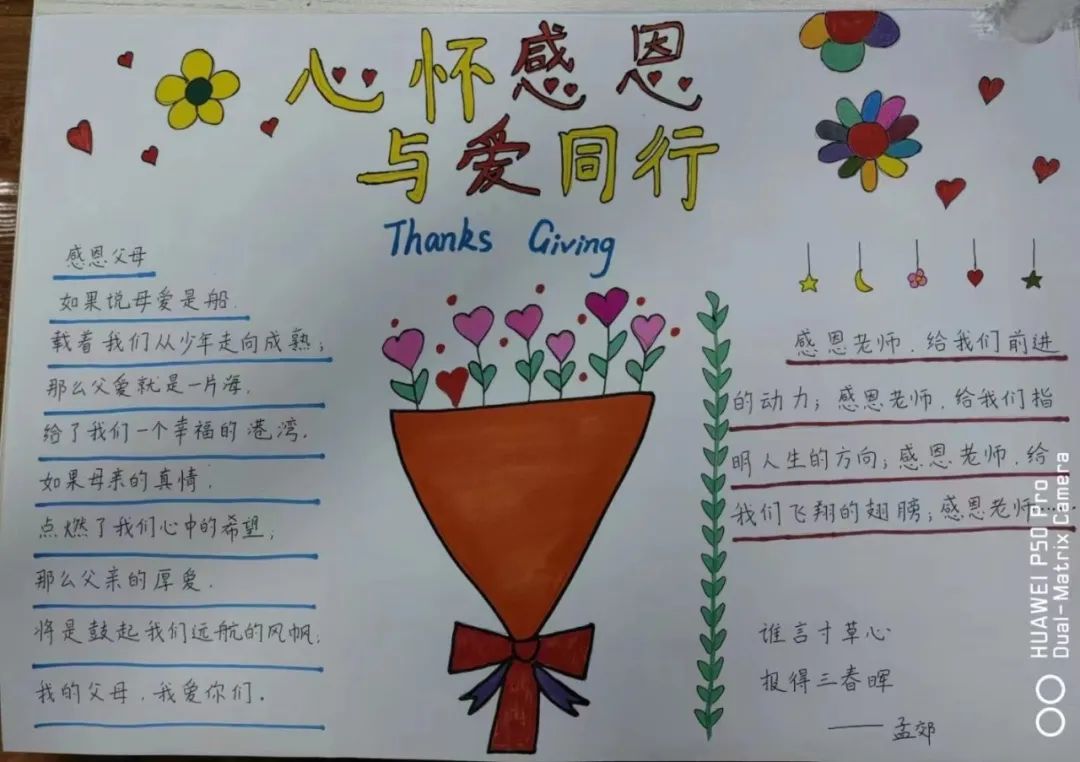 心怀感恩
与爱同行
Thanks Giving
感恩父母
如果说母爱是船.
载着我们从少年走向成熟;
那么父爱就是一片海,
给了我们一个幸福的港湾.
如果母亲的真情,
点燃了我们心中的希望;
那么父亲的厚爱.
将是鼓起我们远航的风帆.
我的父母,我爱你们.
感恩老师.给我们前进
的动力;感恩老师.给我们指
明人生的方向;感恩老师.给
我们飞翔的翅膀;感恩老师……
谁言寸草心
报得三春晖
——孟郊
HUAWEI P50 Pro
Dual-Matrix Camera